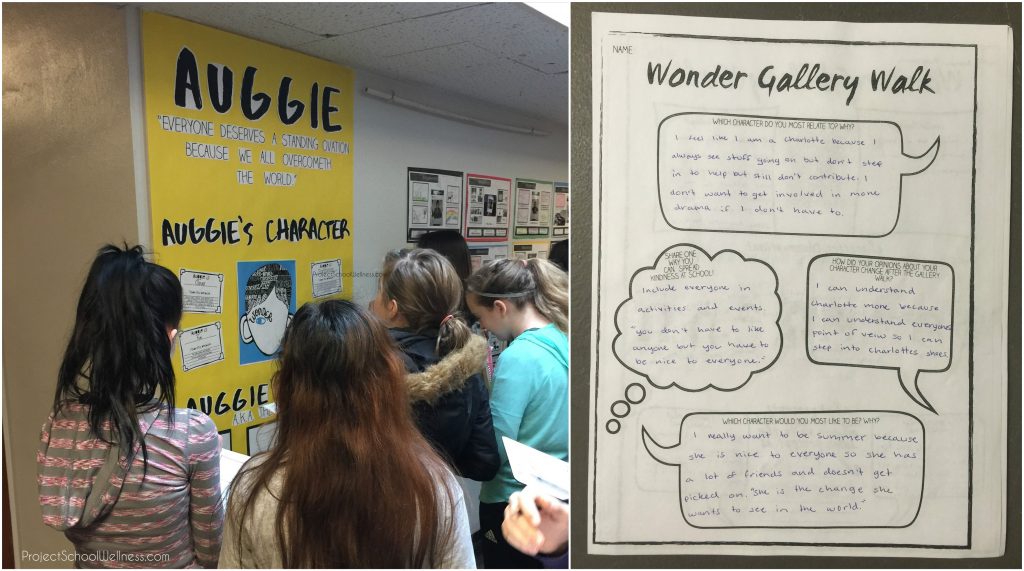 AUGGIE
"EVERYONE DESERVES A STANDING OVATION
BECAUSE WE ALL OVERCOMETH
THE WORLD."
AUGGIE'S CHARACTER
AUGGIE
AUGGIE
wonder
AUGGIE
A.K.A. THE
ProjectSchoolWellness.com
ProjectSchoolWellness.com
NAME:
Wonder Gallery Walk
WHICH CHARACTER DO YOU MOST RELATE TO? WHY?
I feel like I am a charlotte because I
always see stuff going on but don't step
in to help but still don't contribute. I
don't want to get involved in more
drama if I don't have to.
SHARE ONE
WAY YOU
CAN SPREAD
KINDNESS AT SCHOOL!
Include everyone in
activities and events.
"you don't have to like
anyone but you have to
be nice to everyone."
HOW DID YOUR OPINIONS ABOUT YOUR
CHARACTER CHANGE AFTER THE GALLERY
WALK?
I can understand
charlotte more because
I can understand everyones
point of veiw so I can
step into charlottes shoes.
WHICH CHARACTER WOULD YOU MOST LIKE TO BE? WHY?
I really want to be summer because
she is nice to everyone so she has
a lot of friends and doesn't get
picked on. "she is the change she
wants to see in the world."